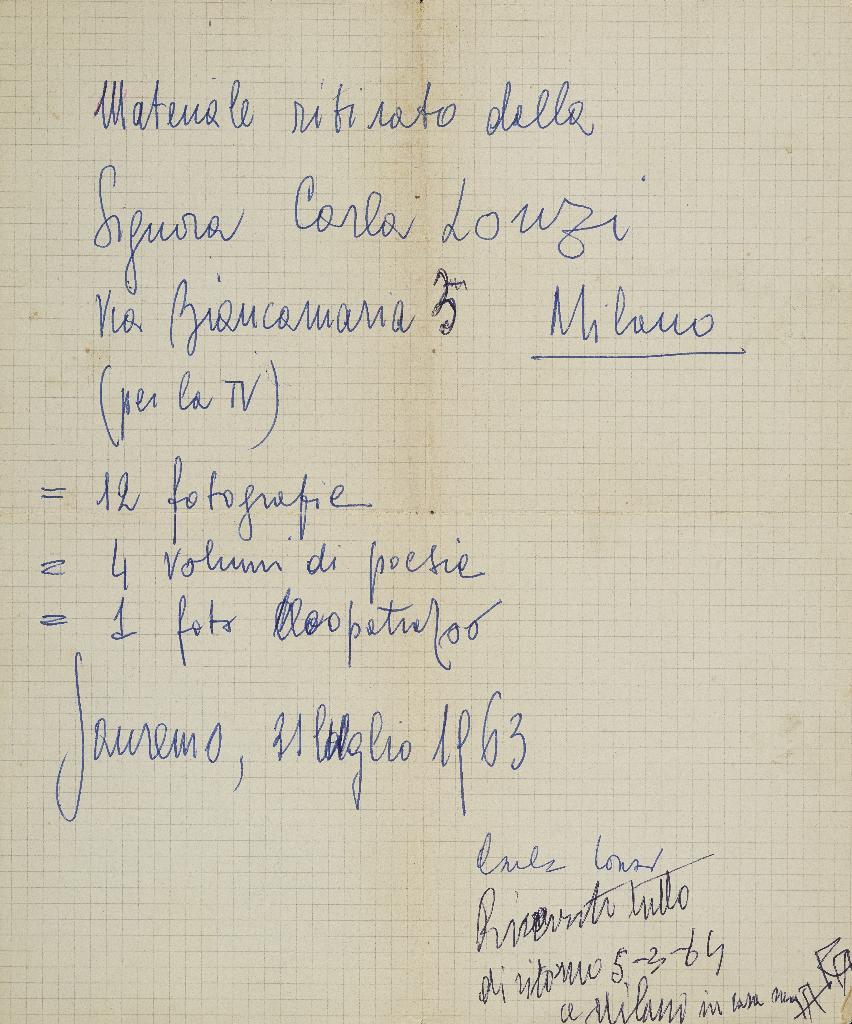 Materiale ritirato dalla
Signora Carla Lonzi
Via Biancamaria 5 Milano
(per la TV)
= 12 fotografie
= 4 volumi di poesia
= 1 foto
Sanremo, 31 luglio 1963
Carla Lonzi
Ricevuto tutto
di ritorno 5-2-64
a Milano in casa sua